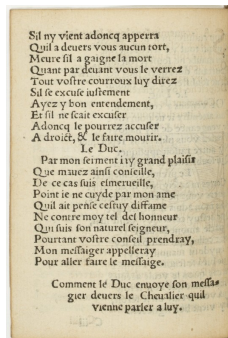 Sil ny vient adoncq apperra
Quil a deuers vous aucun tort,
Meure sil a gaigne la mort
Quant par deuant vous le verrez
Tout vostre courroux luy direz
Sil se excuse iustement
Ayez y bon entendement,
Et sil ne scait excuser
Adoncq le pourrez accuser
A droict, & le faire mourir.
Le Duc.
Par mon serment i ry grand plaisir
Que mauez ainsi conseille,
De ce cas suis esmerueille,
Point ie ne cuyde par mon ame
Quil ait pense cestuy diffame
Ne contre moy tel des honneur
Qui suis son naturel seigneur,
Pourtant vostre conseil prendray,
Mon messaiger appelleray
Pour aller faire le messaige.
Comment le Duc enuoye son messa-
gier deuers le Cheualier quil
vienne parler a luy.